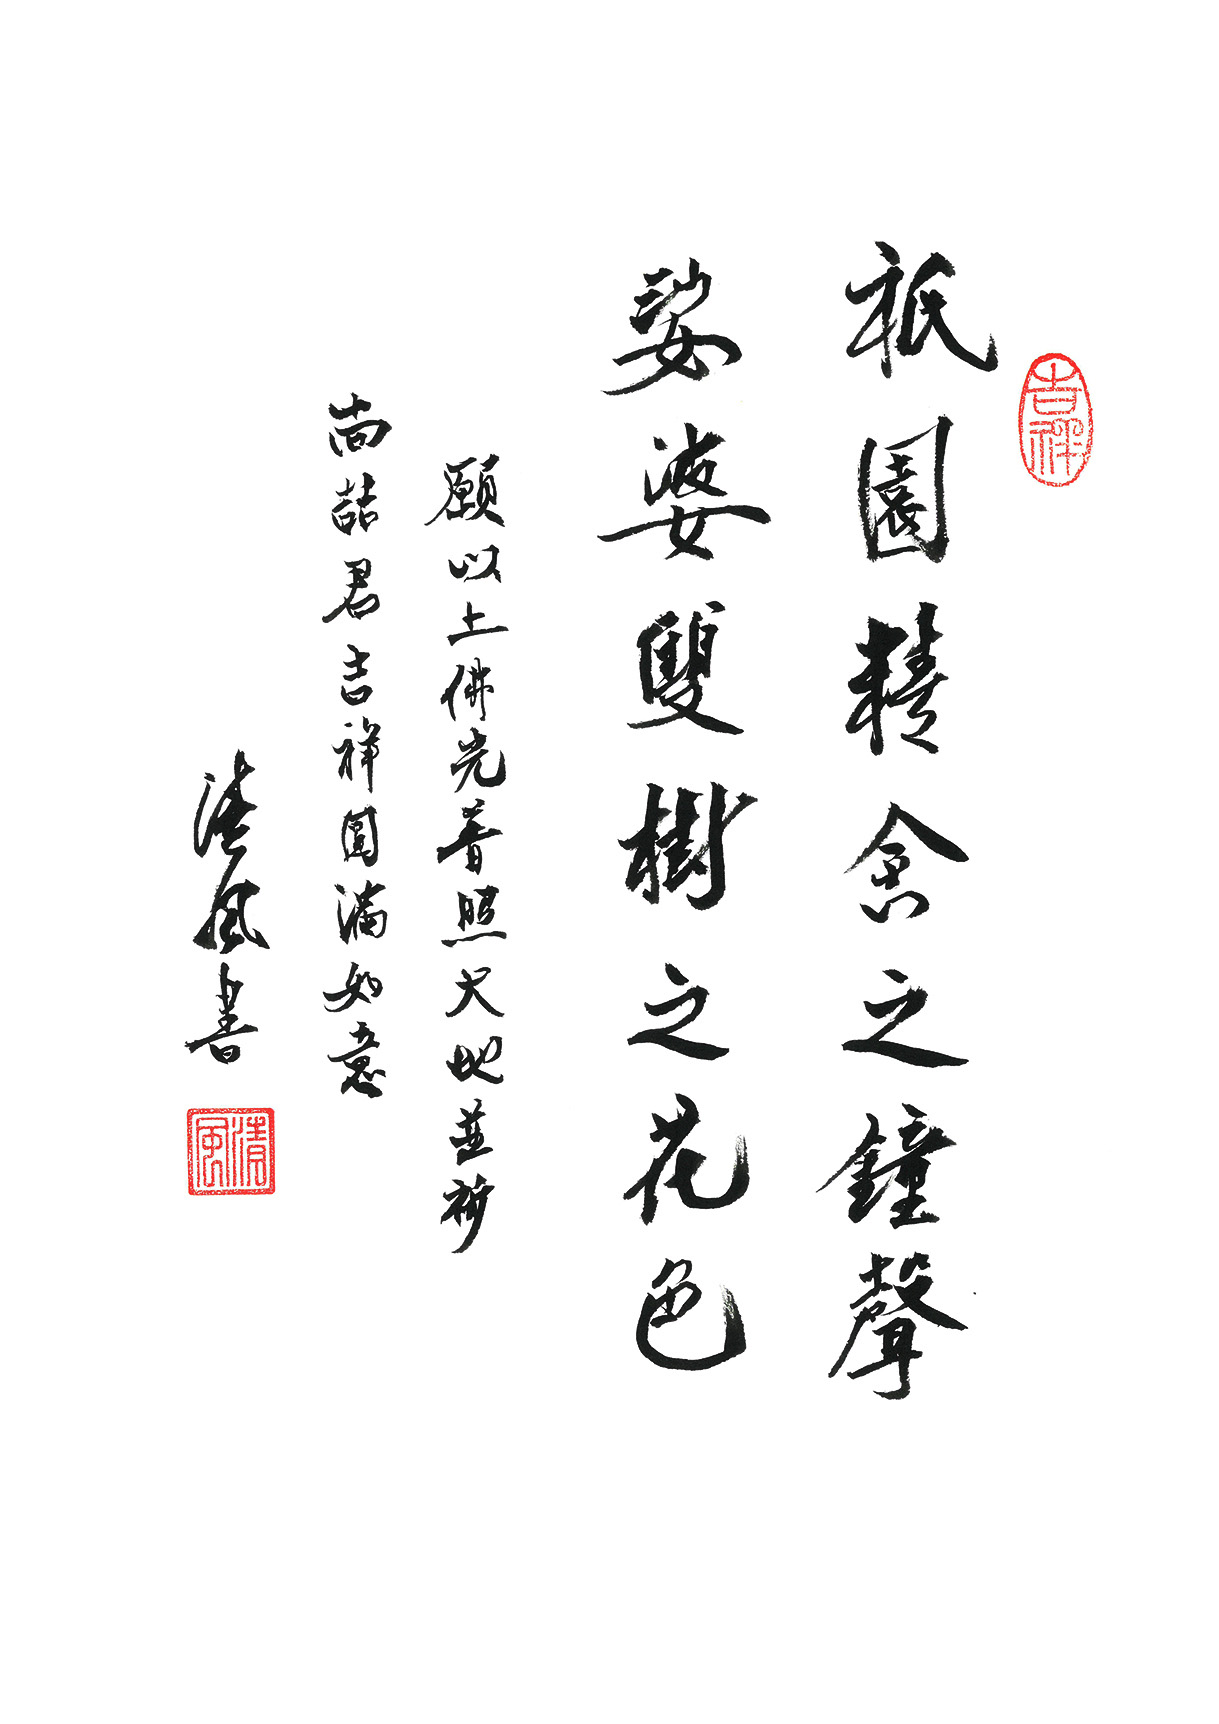 吉祥
祇園精舍之鐘聲
娑婆雙樹之花色
願以上佛光普照大地並祈
尚喆君吉祥圓滿如意
清風書
清風